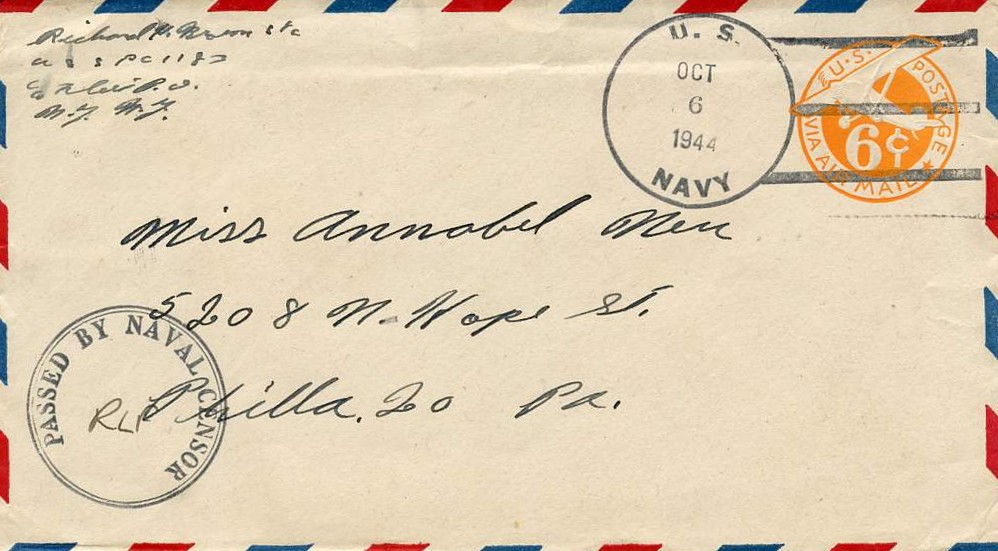 Richard
U S S PC 1182
c/o Flt P.O.
N.Y. N.Y.
U. S.
OCT
6
1944
NAVY
U.S. POSTAGE
6¢
VIA AIR MAIL
Miss Annabel
5208 N. Hope St.
Philla. 20 Pa.
PASSED BY NAVAL CENSOR